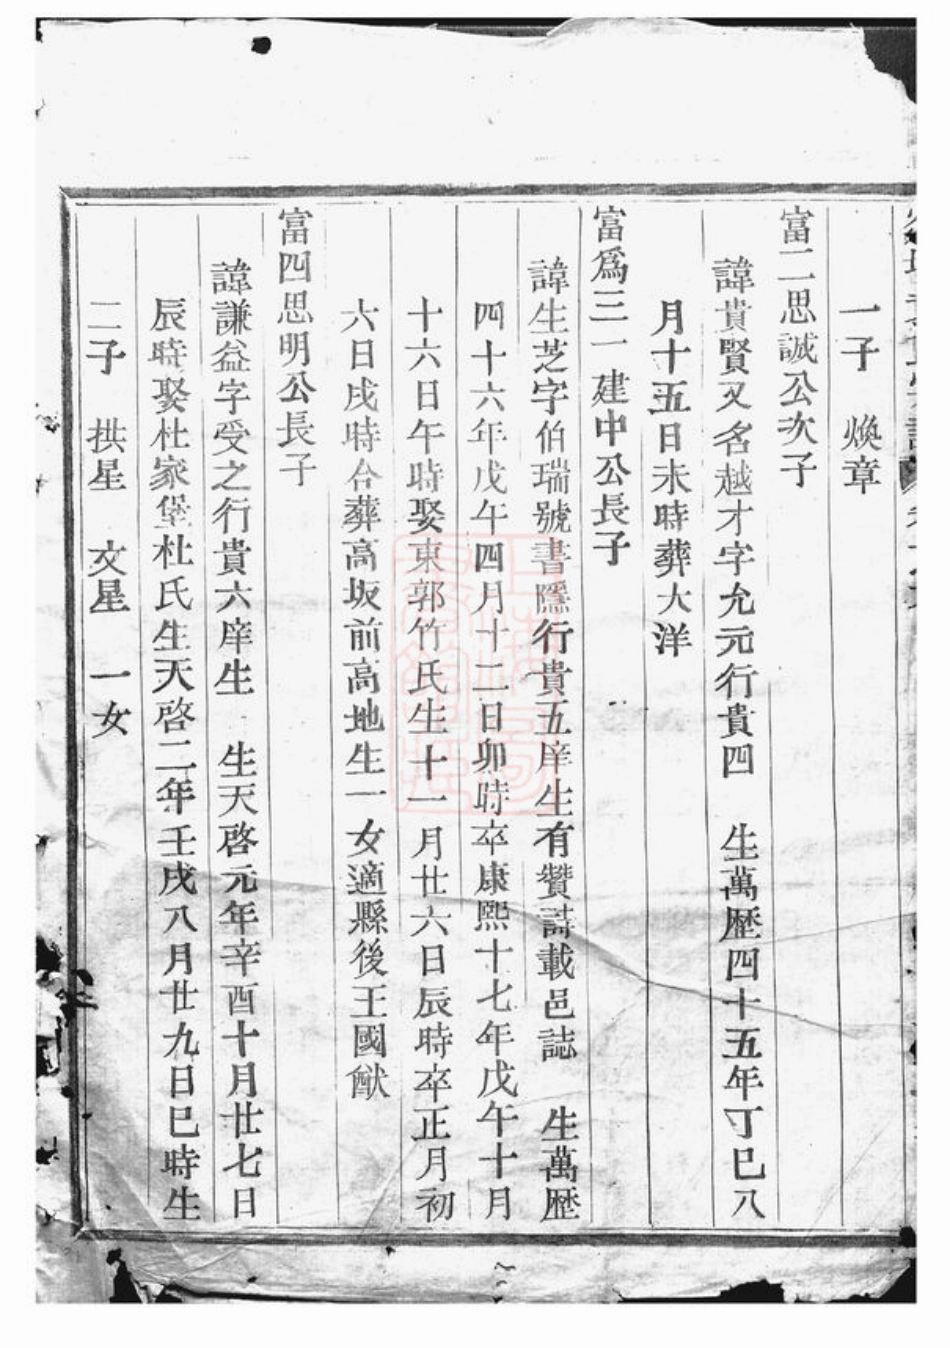 一子 煥章
富二思誠公次子
諱貴賢又名越才字允元行貴四 生萬歷四十五年丁巳八
月十五日未時葬大洋
富爲三一建中公長子
諱生芝字伯瑞號書隱行貴五庠生有贊詩載邑誌 生萬歷
四十六年戊午四月十二日卯時卒康熙十七年戊午十月
十六日午時娶東郭竹氏生十一月廿六日辰時卒正月初
六日戌時合葬高坂前高地生一女適縣後王國猷
富四思明公長子
諱謙益字受之行貴六庠生 生天啓元年辛酉十月廿七日
辰時娶杜家堡杜氏生天啓二年壬戌八月廿九日巳時生
二子 拱星 文星 一女